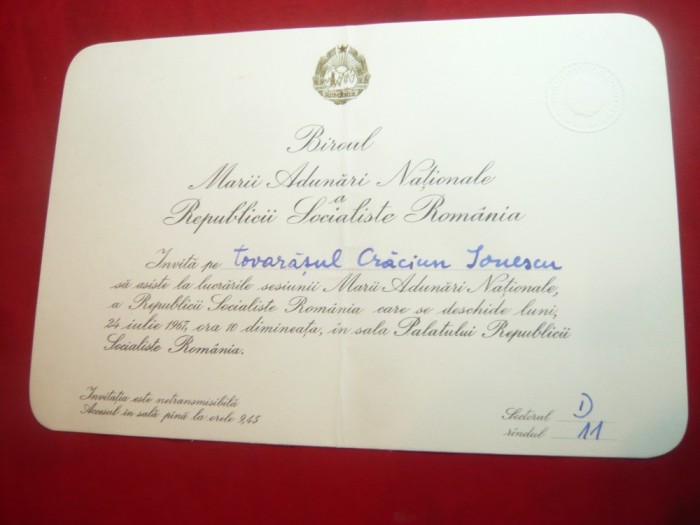 Biroul
Marii Adunări Naționale
a
Republicii Socialiste România
Invită pe tovarășul Crăciun Ionescu
să asiste la lucrările sesiunii Marii Adunări Naționale,
a Republicii Socialiste România care se deschide luni,
24 iulie 1967, ora 10 dimineața, în sala Palatului Republicii
Socialiste România.
Invitația este netransmisibilă
Accesul în sală pînă la orele 9,45
Sectorul D
rîndul 11